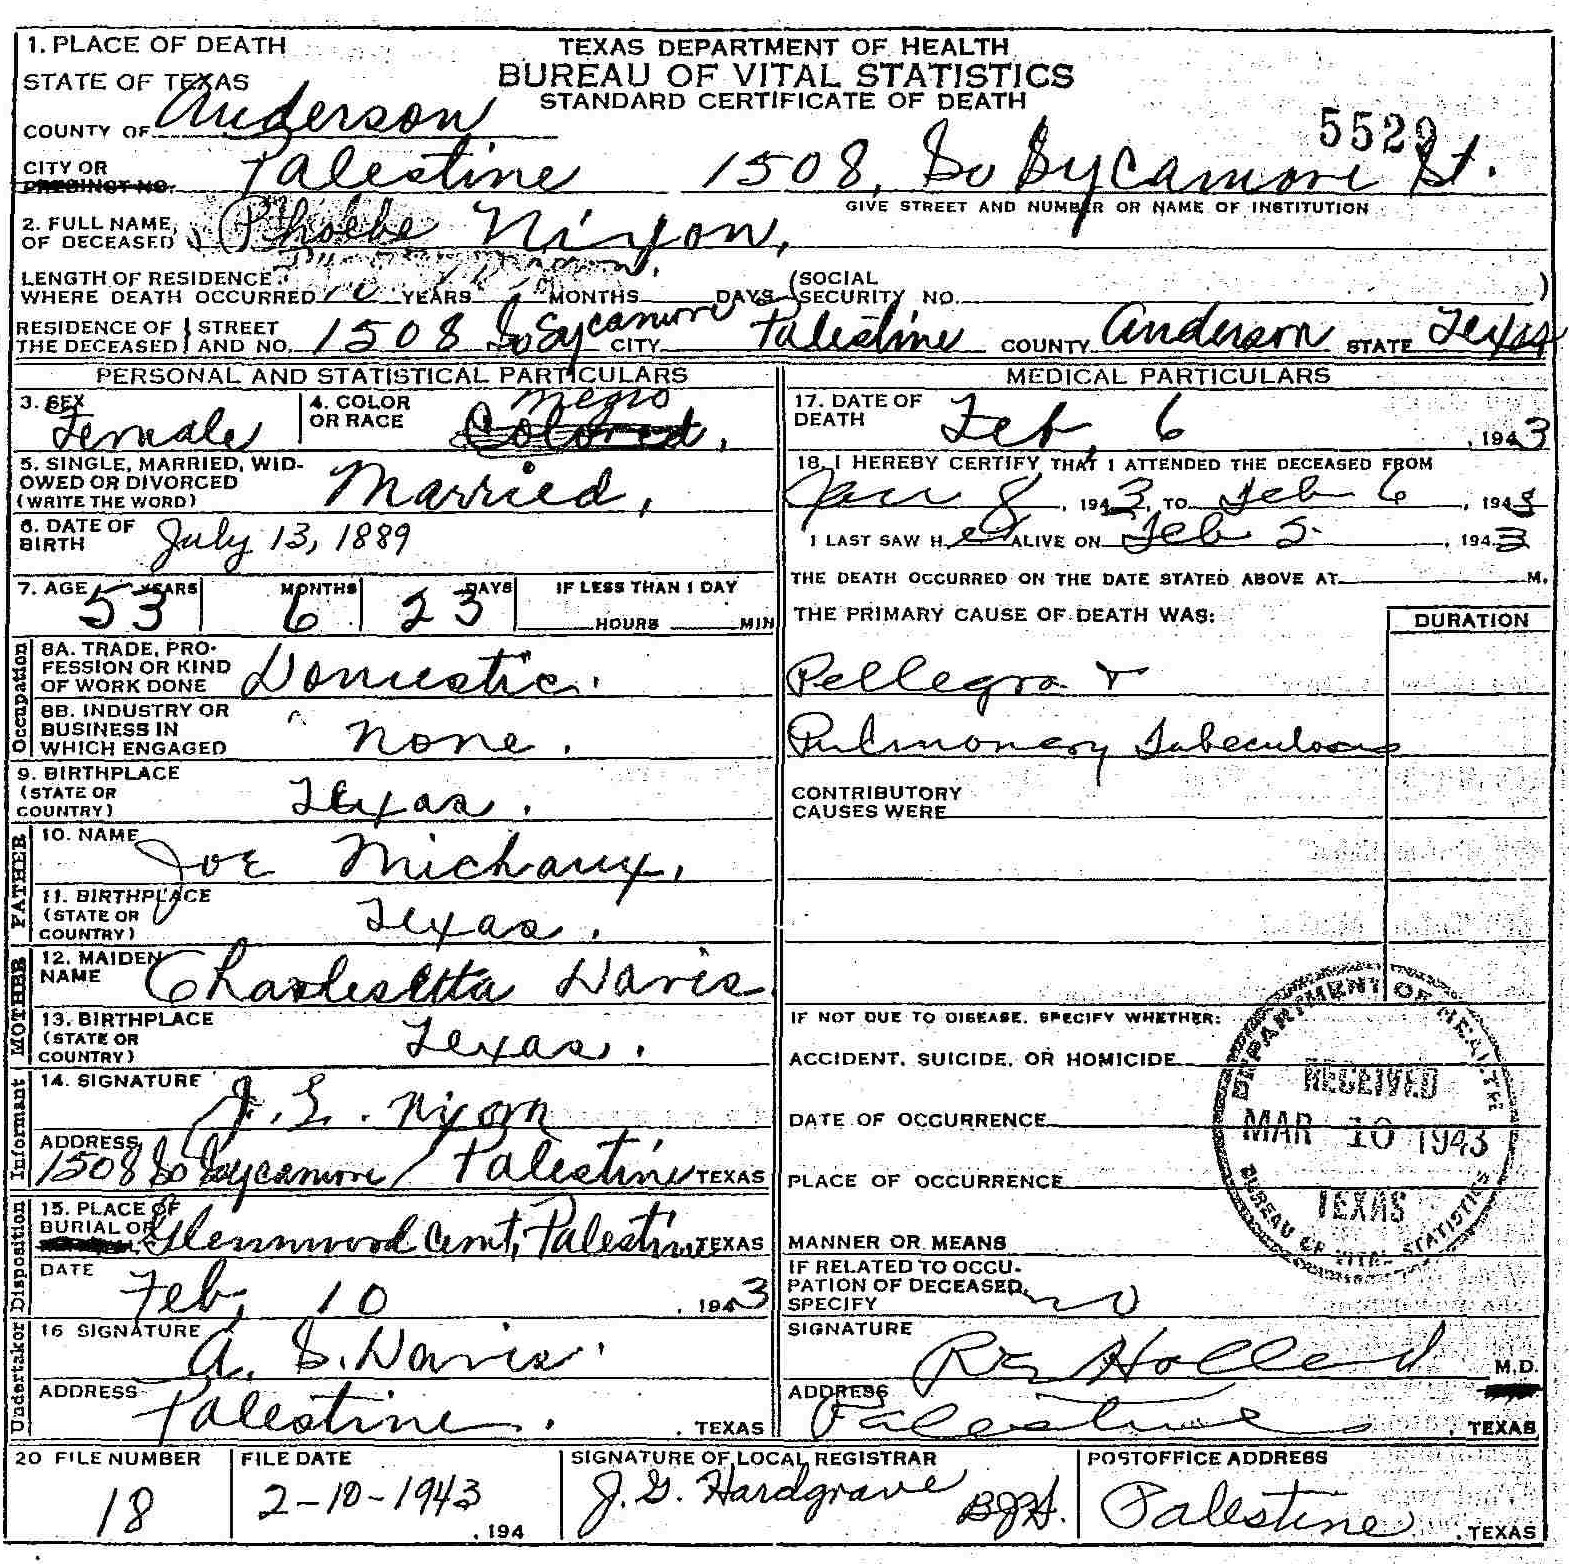 1. PLACE OF DEATH
TEXAS DEPARTMENT OF HEALTH
BUREAU OF VITAL STATISTICS
STANDARD CERTIFICATE OF DEATH
STATE OF TEXAS
COUNTY OF Anderson
5529
CITY OR PRECINCT NO. Palestine 1508, So Sycamore St.
GIVE STREET AND NUMBER OR NAME OF INSTITUTION
2. FULL NAME OF DECEASED Phoebe Nixon,
LENGTH OF RESIDENCE WHERE DEATH OCCURRED YEARS MONTHS DAYS (SOCIAL SECURITY NO. )
RESIDENCE OF THE DECEASED STREET AND NO. 1508 So Sycamore CITY Palestine COUNTY Anderson STATE Texas
PERSONAL AND STATISTICAL PARTICULARS
3. SEX Female
4. COLOR OR RACE Negro Colored,
5. SINGLE, MARRIED, WIDOWED OR DIVORCED (WRITE THE WORD) Married,
6. DATE OF BIRTH July 13, 1889
7. AGE 53 YEARS 6 MONTHS 23 DAYS IF LESS THAN 1 DAY HOURS MIN
Occupation
8A. TRADE, PROFESSION OR KIND OF WORK DONE Domestic.
8B. INDUSTRY OR BUSINESS IN WHICH ENGAGED None.
9. BIRTHPLACE (STATE OR COUNTRY) Texas.
FATHER
10. NAME Joe Michaux,
11. BIRTHPLACE (STATE OR COUNTRY) Texas.
MOTHER
12. MAIDEN NAME Charlesetta Davis
13. BIRTHPLACE (STATE OR COUNTRY) Texas.
Informant
14. SIGNATURE J. E. Nixon
ADDRESS 1508 So Sycamore / Palestine TEXAS
Disposition
15. PLACE OF BURIAL OR Glennwood Cemt, Palestine TEXAS
DATE Feb, 10, 1943
Undertaker
16 SIGNATURE A. S. Davis.
ADDRESS Palestine. , TEXAS
MEDICAL PARTICULARS
17. DATE OF DEATH Feb, 6, 1943
18. I HEREBY CERTIFY THAT I ATTENDED THE DECEASED FROM
Jan 8, 1943, TO Feb 6, 1943
I LAST SAW HER ALIVE ON Feb 5, 1943
THE DEATH OCCURRED ON THE DATE STATED ABOVE AT M.
THE PRIMARY CAUSE OF DEATH WAS: DURATION
Pellegra +
Pulmonary Tubeculosis
CONTRIBUTORY CAUSES WERE
IF NOT DUE TO DISEASE, SPECIFY WHETHER:
ACCIDENT, SUICIDE, OR HOMICIDE
DATE OF OCCURRENCE
PLACE OF OCCURRENCE
MANNER OR MEANS
DEPARTMENT OF HEALTH
RECEIVED
MAR 10 1943
TEXAS
BUREAU OF VITAL STATISTICS
IF RELATED TO OCCUPATION OF DECEASED, SPECIFY no
SIGNATURE Holland M.D.
ADDRESS Palestine, TEXAS
20 FILE NUMBER 18
FILE DATE 2-10-1943 , 194
SIGNATURE OF LOCAL REGISTRAR J. G. Hardgrave
POSTOFFICE ADDRESS Palestine, TEXAS